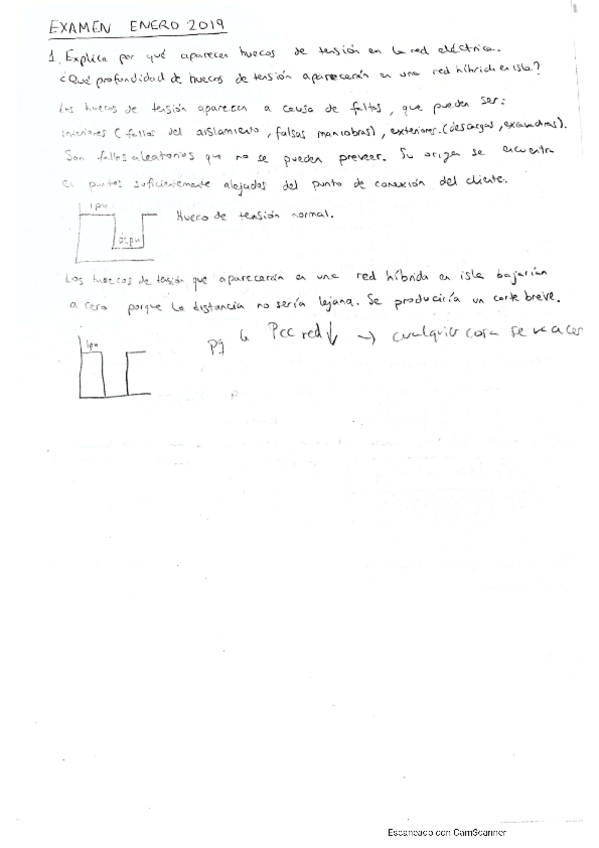 EXAMEN ENERO 2019
1. Explica por qué aparecen huecos de tensión en la red eléctrica.
¿Qué profundidad de huecos de tensión aparecerán en una red híbrida en isla?
Los huecos de tensión aparecen a causa de faltas, que pueden ser:
interiores (fallos del aislamiento, falsas maniobras), exteriores (descargas, excavadoras).
Son fallos aleatorios que no se pueden preveer. Su origen se encuentra
en puntos suficientemente alejados del punto de conexión del cliente.
1pu
Hueco de tensión normal.
Los huecos de tensión que aparecerán en una red híbrida en isla bajarían
a cero porque la distancia no sería lejana. Se produciría un corte breve.
1pu
Pq la Pcc red ↓ → cualquier cosa se va a cer
Escaneado con CamScanner